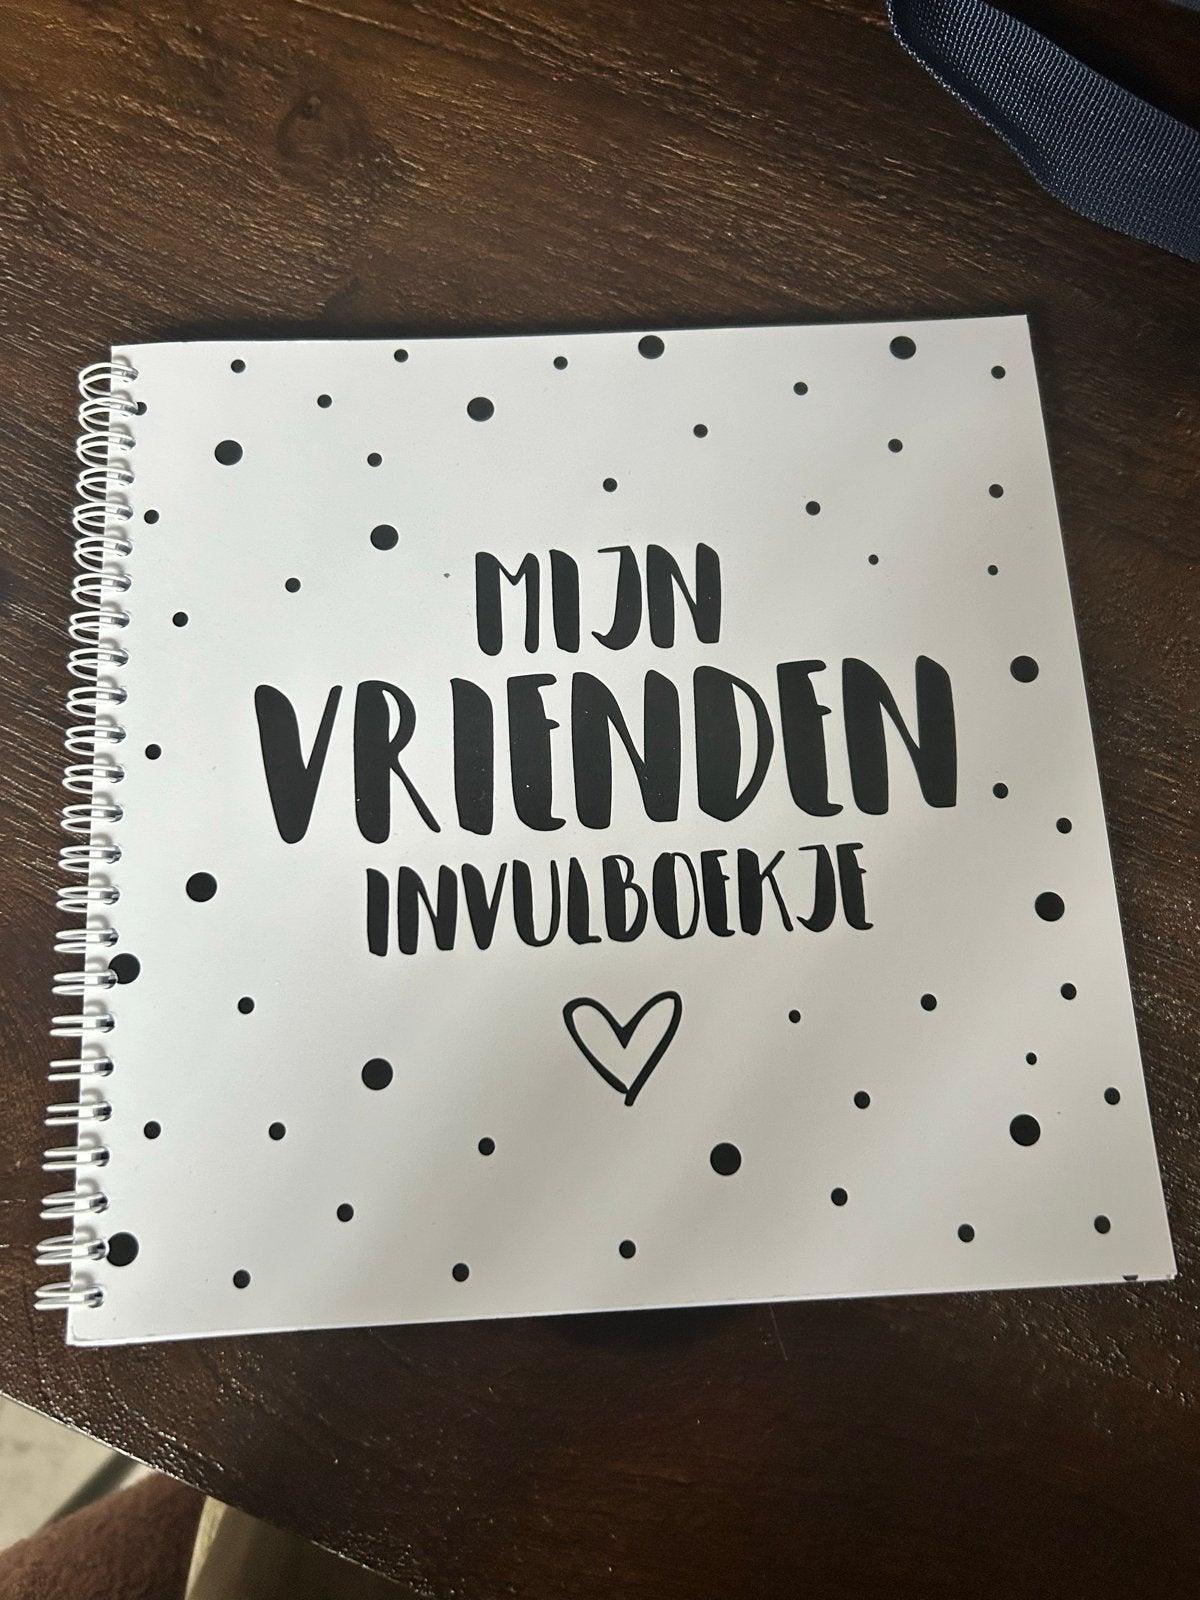 MIJN
VRIENDEN
INVULBOEKJE